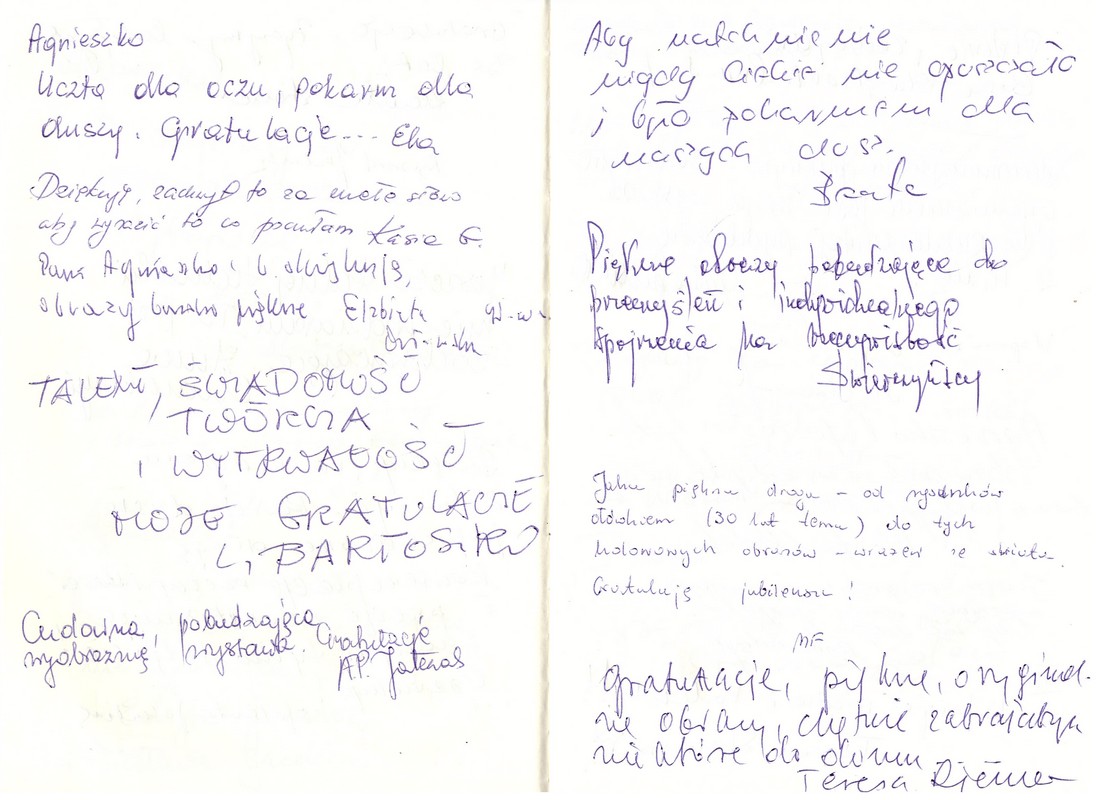 Agnieszko
Uczta dla oczu, pokarm dla
duszy. Gratulacje... Ela
Dziękuję, zachwyt to za mało słów
aby wyrazić to co poczułam Kasia G.
Pani Agnieszko b. dziękuję,
obrazy bardzo piękne Elżbieta
TALENT, ŚWIADOMOŚĆ
TWÓRCZA
I WYTRWAŁOŚĆ
MOJE GRATULACJE
L. BARTOSIK
Cudowna, pobudzająca
wyobraźnię wystawa. Gratulacje
AP.
Aby natchnienie
nigdy Ciebie nie opuszczało
i było pokarmem dla
naszych dusz.
Beata
Piękne obrazy pobudzające do
przemyśleń i indywidualnego
spojrzenia na rzeczywistość
Jaka piękna droga - od rysunków
ołówkiem (30 lat temu) do tych
kolorowych obrazów - wrażeń ze świata.
Gratuluję jubileuszu!
MF
Gratulacje, piękne, orginal-
ne obrazy, chętnie zabrałabym
niektóre do domu
Teresa